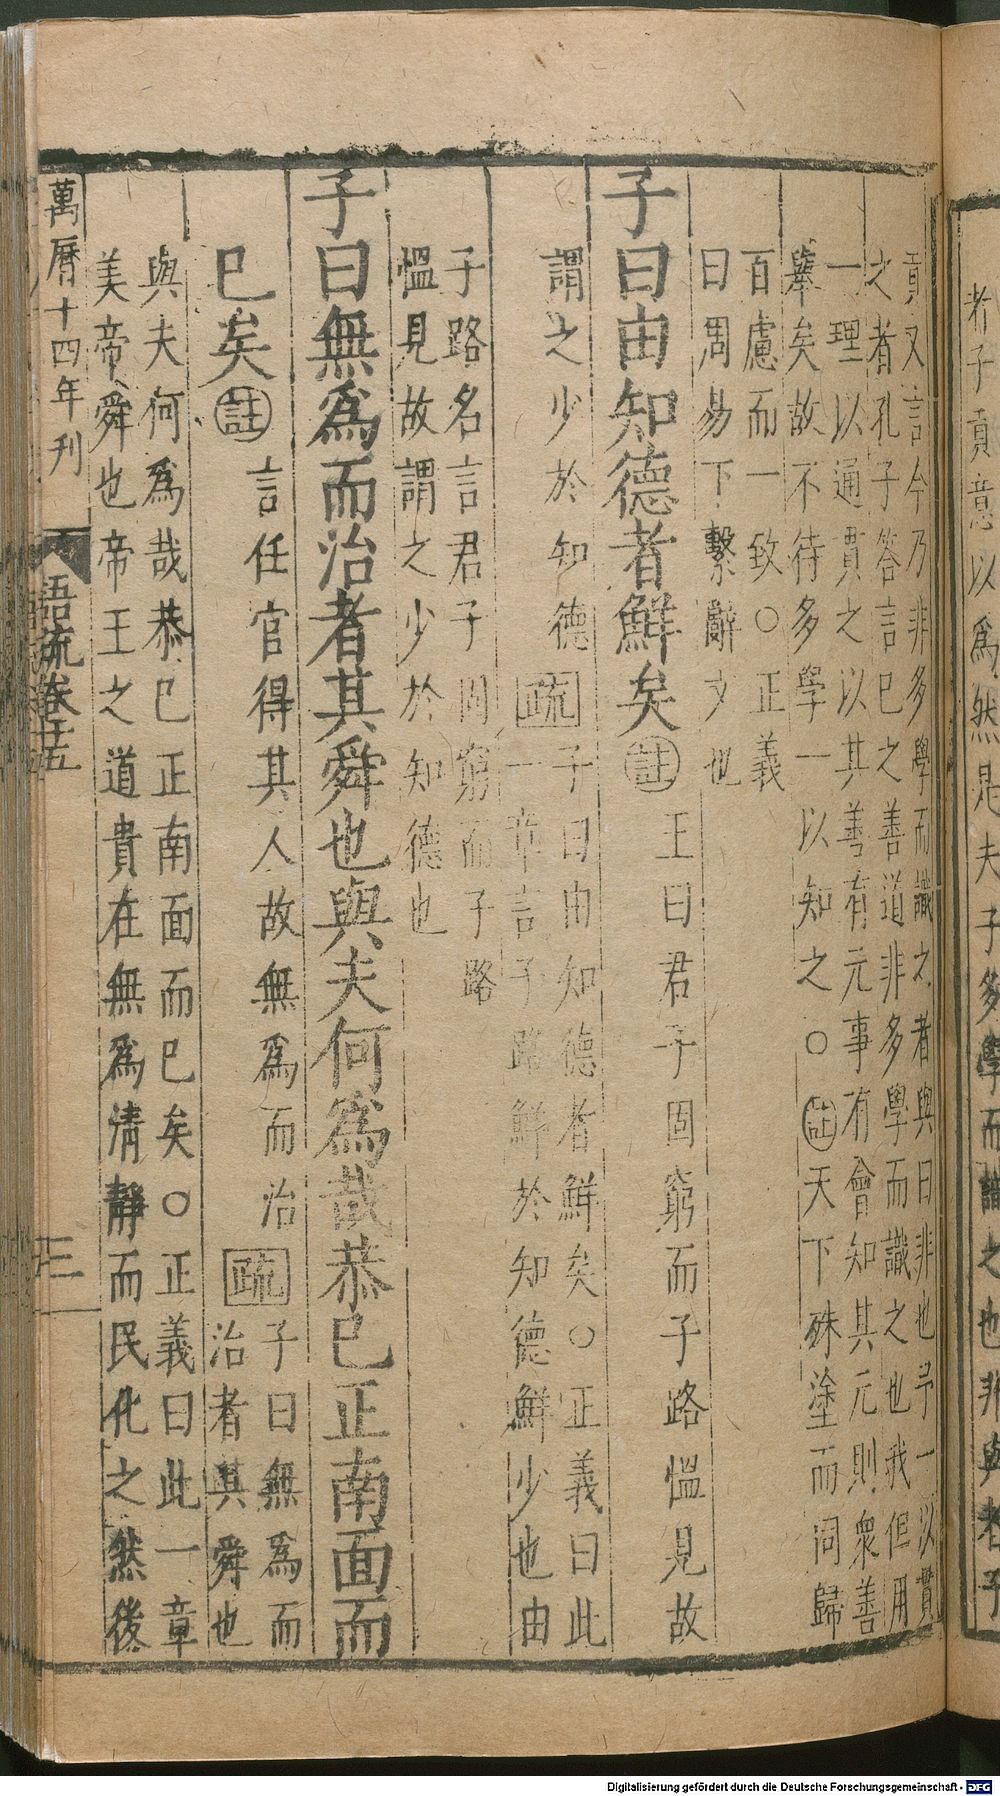 者子貢意以爲然是夫子多學而識之也非與者子
貢又言今乃非多學而識之者與曰非也予一以貫
之者孔子答言已之善道非多學而識之也我但用
一理以通貫之以其善有元事有會知其元則衆善
舉矣故不待多學一以知之〇註天下殊塗而同歸
百慮而一致〇正義
曰周易下繫辭文也
子曰由知德者鮮矣註王曰君子固窮而子路慍見故
謂之少於知德疏子曰由知德者鮮矣〇正義曰此
一章言子路鮮於知德鮮少也由
子路名言君子固窮而子路
慍見故謂之少於知德也
子曰無爲而治者其舜也與夫何爲哉恭己正南面而
已矣註言任官得其人故無爲而治疏子曰無爲而
治者其舜也
與夫何爲哉恭己正南面而已矣〇正義曰此一章
美帝舜也帝王之道貴在無爲清靜而民化之然後
萬曆十四年刊
語疏卷十五
三
Digitalisierung gefördert durch die Deutsche Forschungsgemeinschaft - DFG